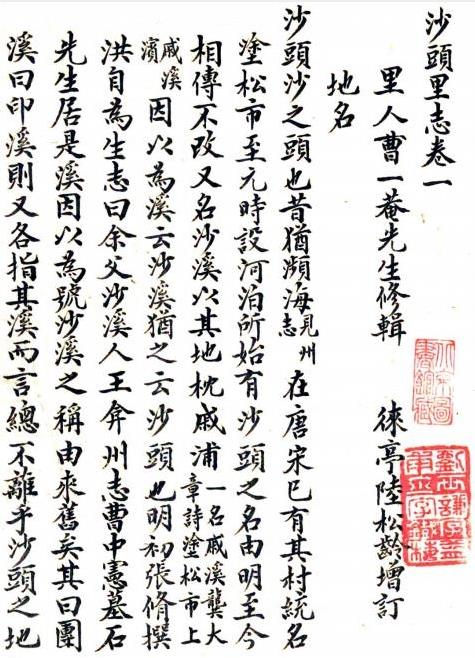 沙頭里志卷一
里人曹一菴先生修輯　徠亭陸松齡增訂
地名
沙頭沙之頭也昔猶瀕海見州志在唐宋已有其村統名
塗松市至元時設河泊所始有沙頭之名由明至今
相傳不改又名沙溪以其地枕戚浦一名戚溪龔大章詩塗松市上
戚溪濱因以為溪云沙溪猶之云沙頭也明初張脩撰
洪自為生志曰余父沙溪人王弇州志曹中憲墓石
先生居是溪因以為號沙溪之稱由來舊矣其曰團
溪曰印溪則又各指其溪而言總不離乎沙頭之地